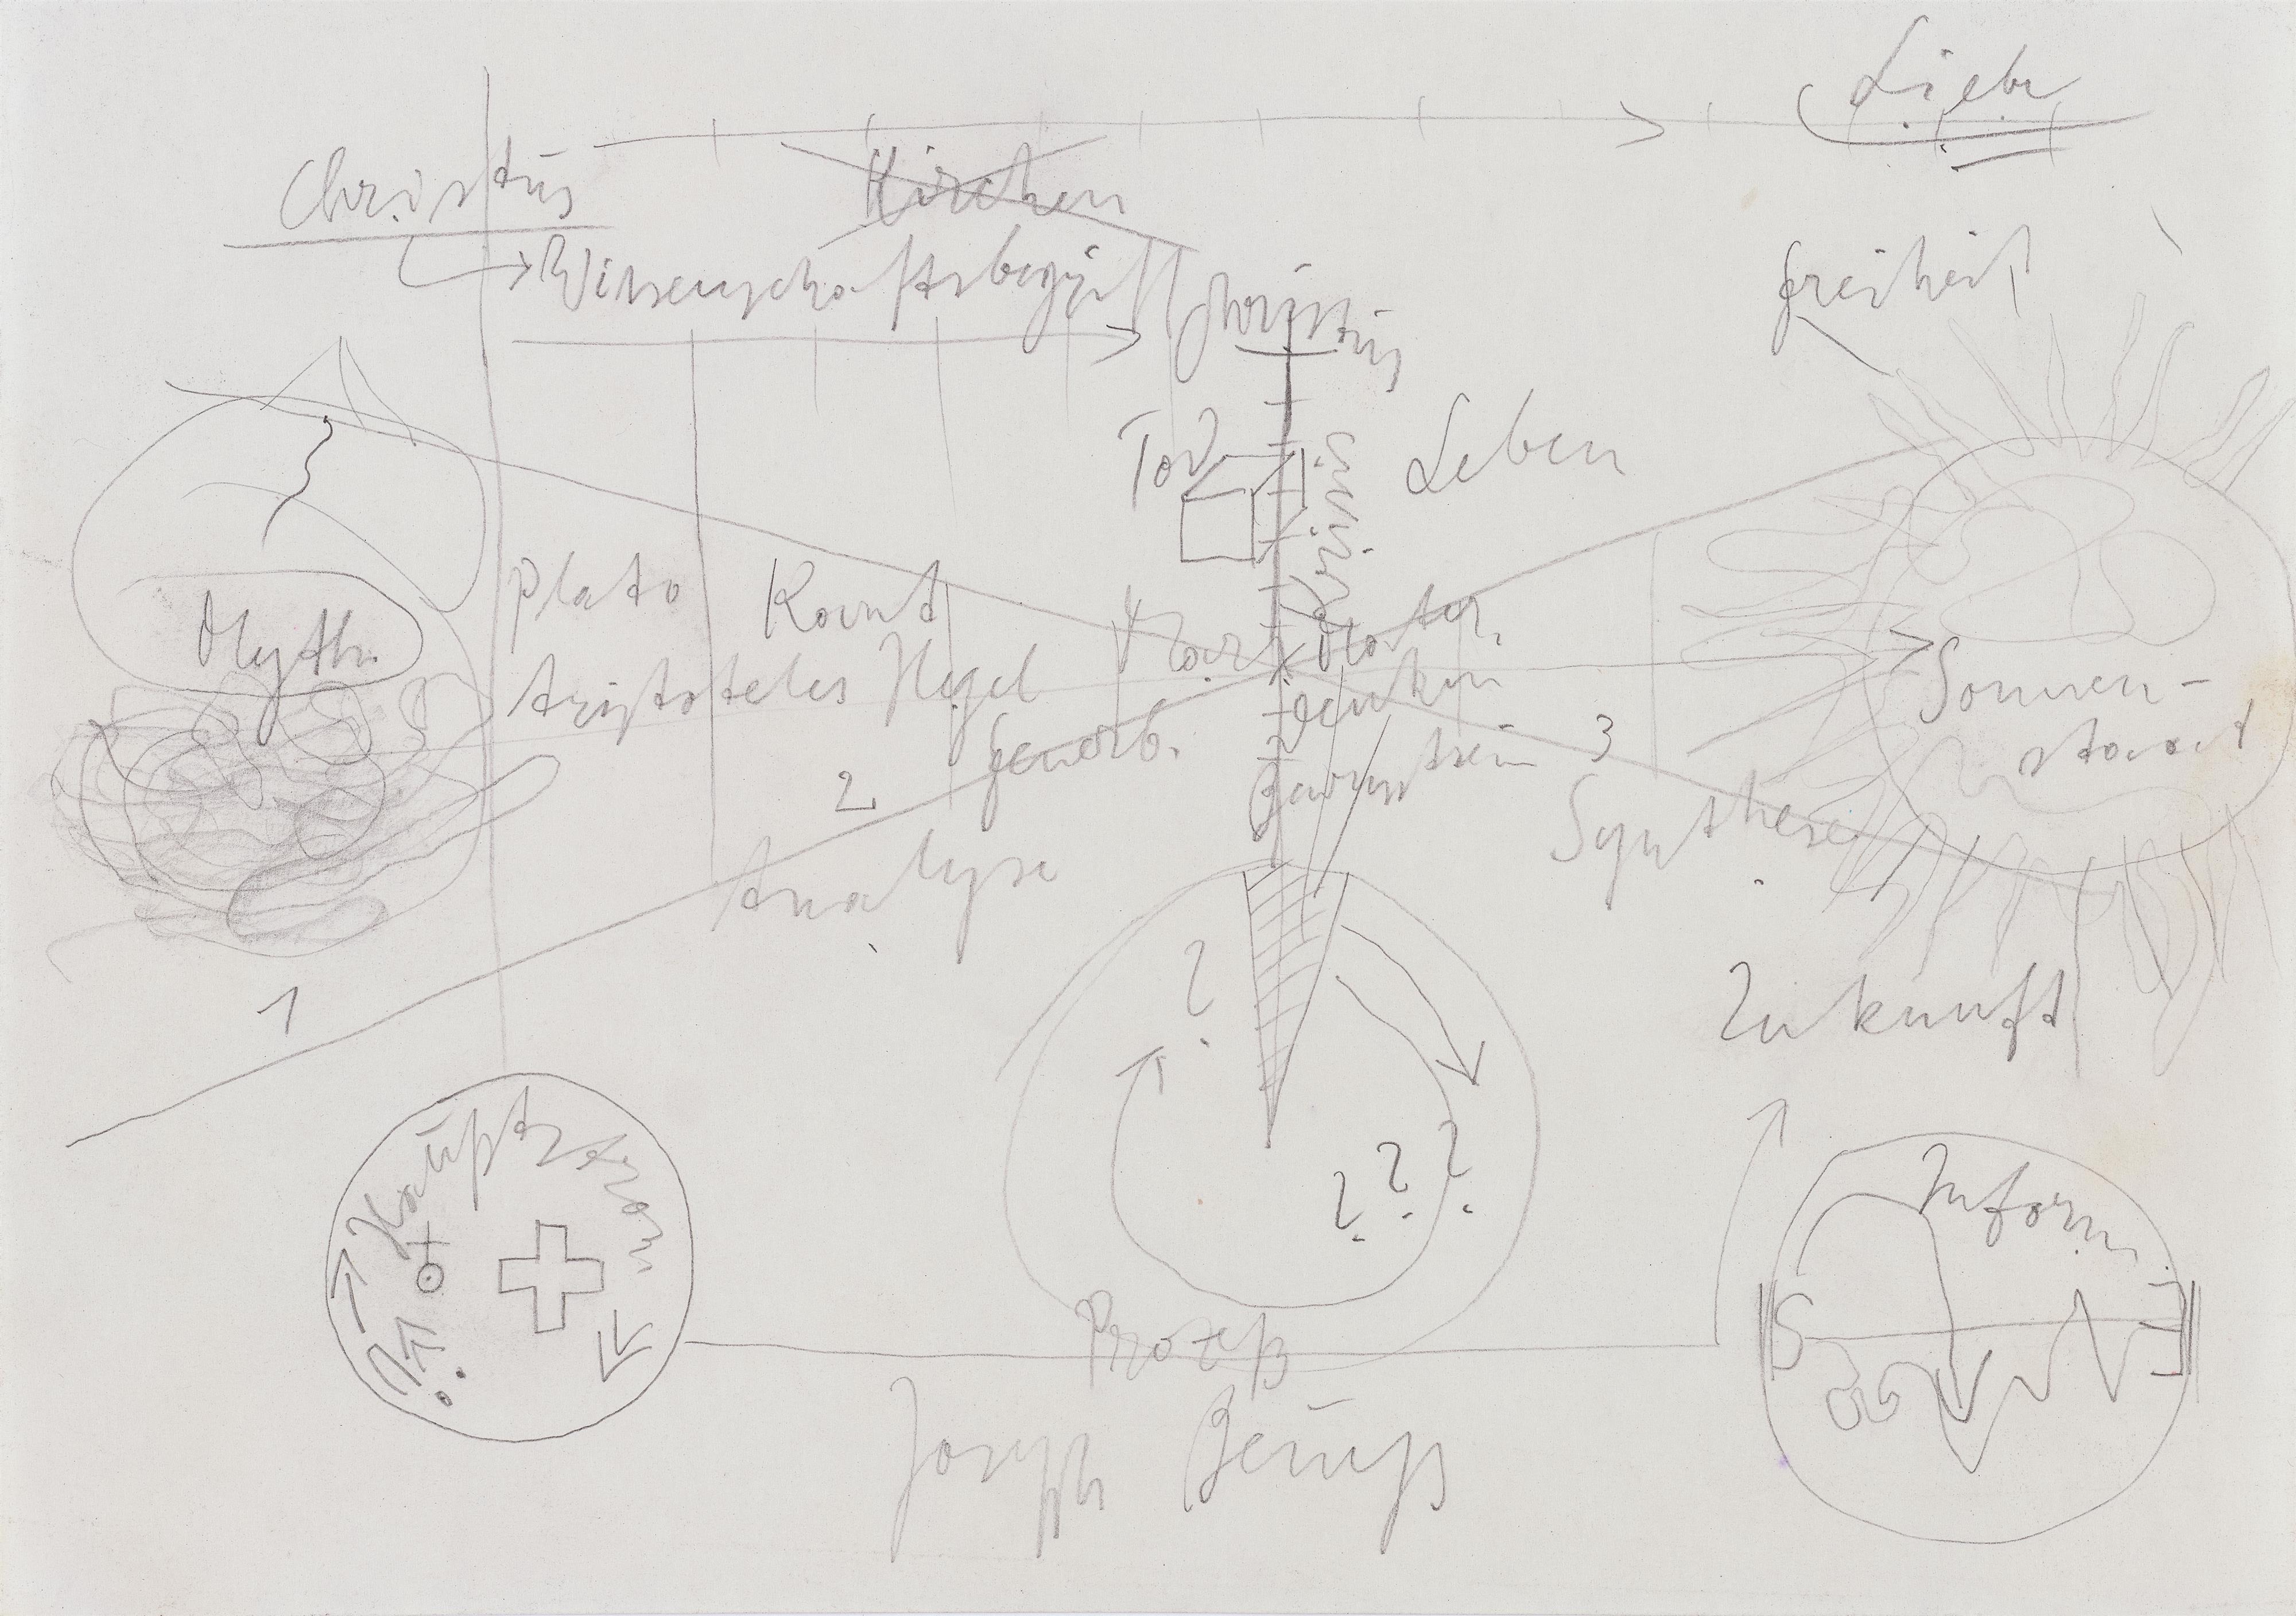 Liebe
Christus
Kirchen
Wissenschaftsbegriff
Christus
Freiheit
Tod
Krisis
Leben
Myth.
Plato
Kant
Marx
Mater.
Aristoteles
Hegel
denken
Gewerb.
Bewusstsein
3
Sonnen-
staat
2
Analyse
Synthese
1
?
Zukunft
Hauptstrom
? ? ?
Inform.
S
E
Prozeß
Joseph Beuys